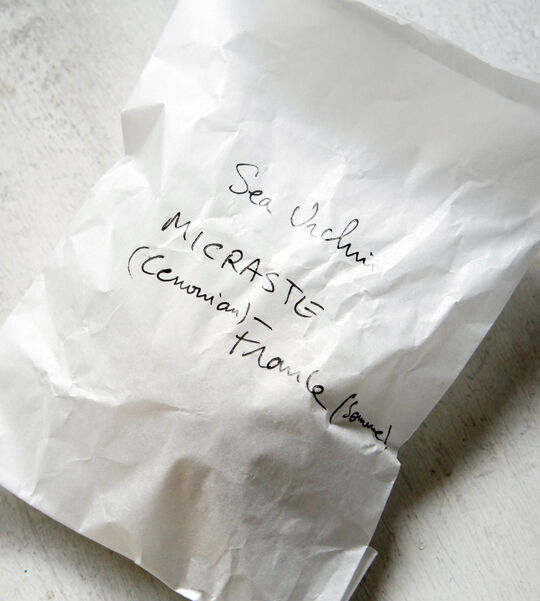 Sea Urchin
MICRASTE
(Cenonian) -
France (Somme)